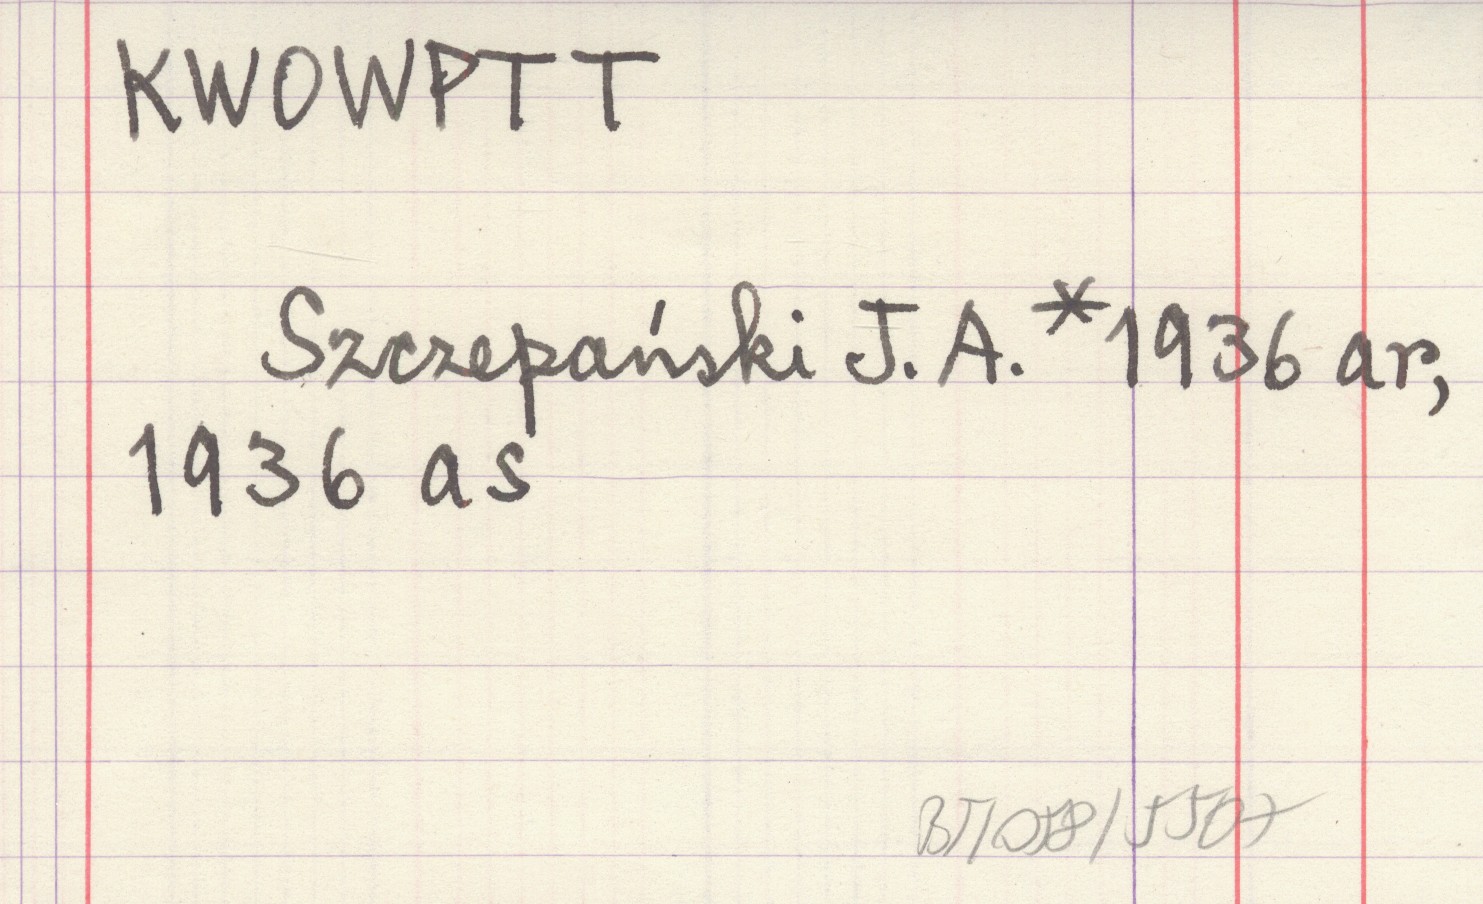 KWOWPTT
Szczepański J. A. *1936 ar,
1936 as
BT/058/5507